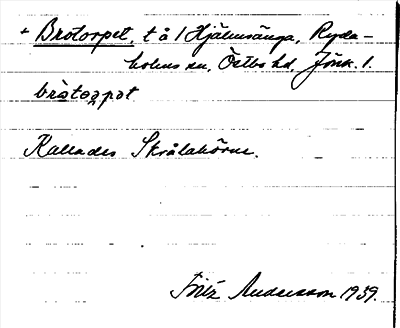 + Brotorpet, t å 1 Hjälmsänga, Ryda-
holms sn, Östbo hd, Jönk. l.
bròtorpət
Kallades Skrålahörne.
Fritz Andersson 1939.